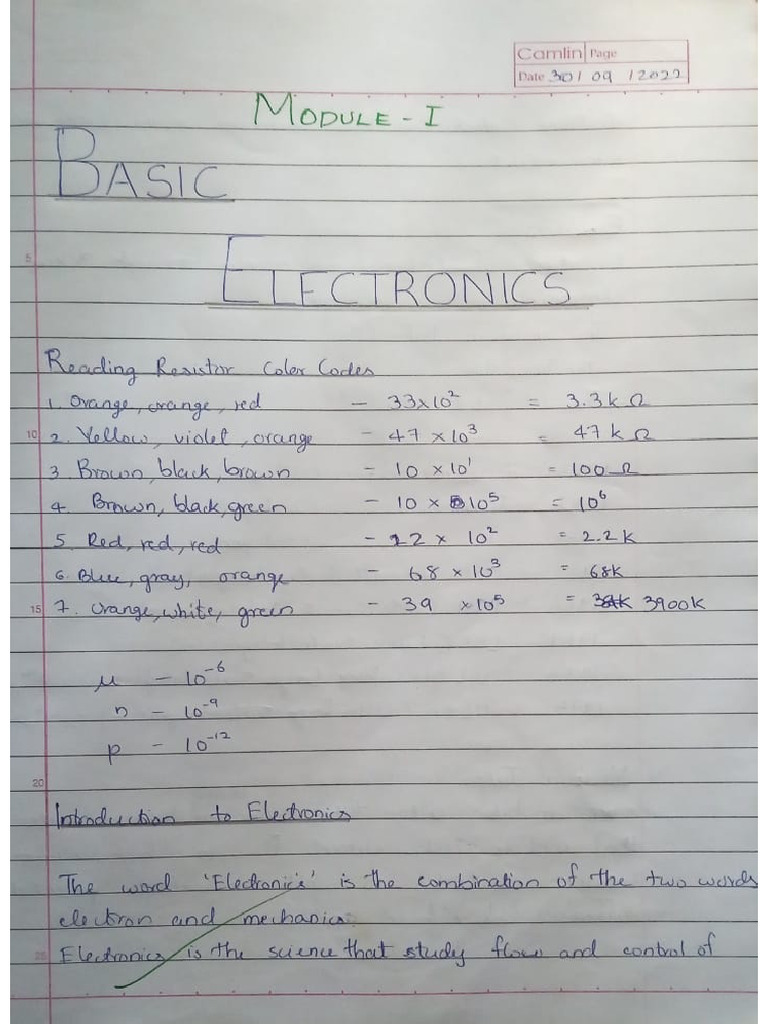 Camlin Page
Date 30/09/2022
MODULE - I
BASIC
5
ELECTRONICS
Reading Resistor Color Codes
1. Orange, orange, red - 33x10² = 3.3k Ω
10 2. Yellow, violet, orange - 47 x10³ = 47k Ω
3. Brown, black, brown - 10 x 10¹ = 100 Ω
4. Brown, black, green - 10 x 10⁵ = 10⁶
5. Red, red, red - 22 x 10² = 2.2K
6. Blue, gray, orange - 68 x 10³ = 68K
15 7. Orange, white, green - 39 x10⁵ = 3900K
μ - 10⁻⁶
n - 10⁻⁹
p - 10⁻¹²
20
Introduction to Electronics
The word 'Electronics' is the combination of the two words
electron and mechanics.
25 Electronics is the science that study flow and control of